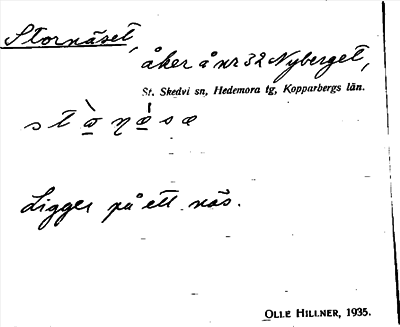 Stornäset,
åker å nr 32 Nyberget,
St. Skedvi sn, Hedemora tg, Kopparbergs län.
Ligger på ett näs.
OLLE HILLNER, 1935.